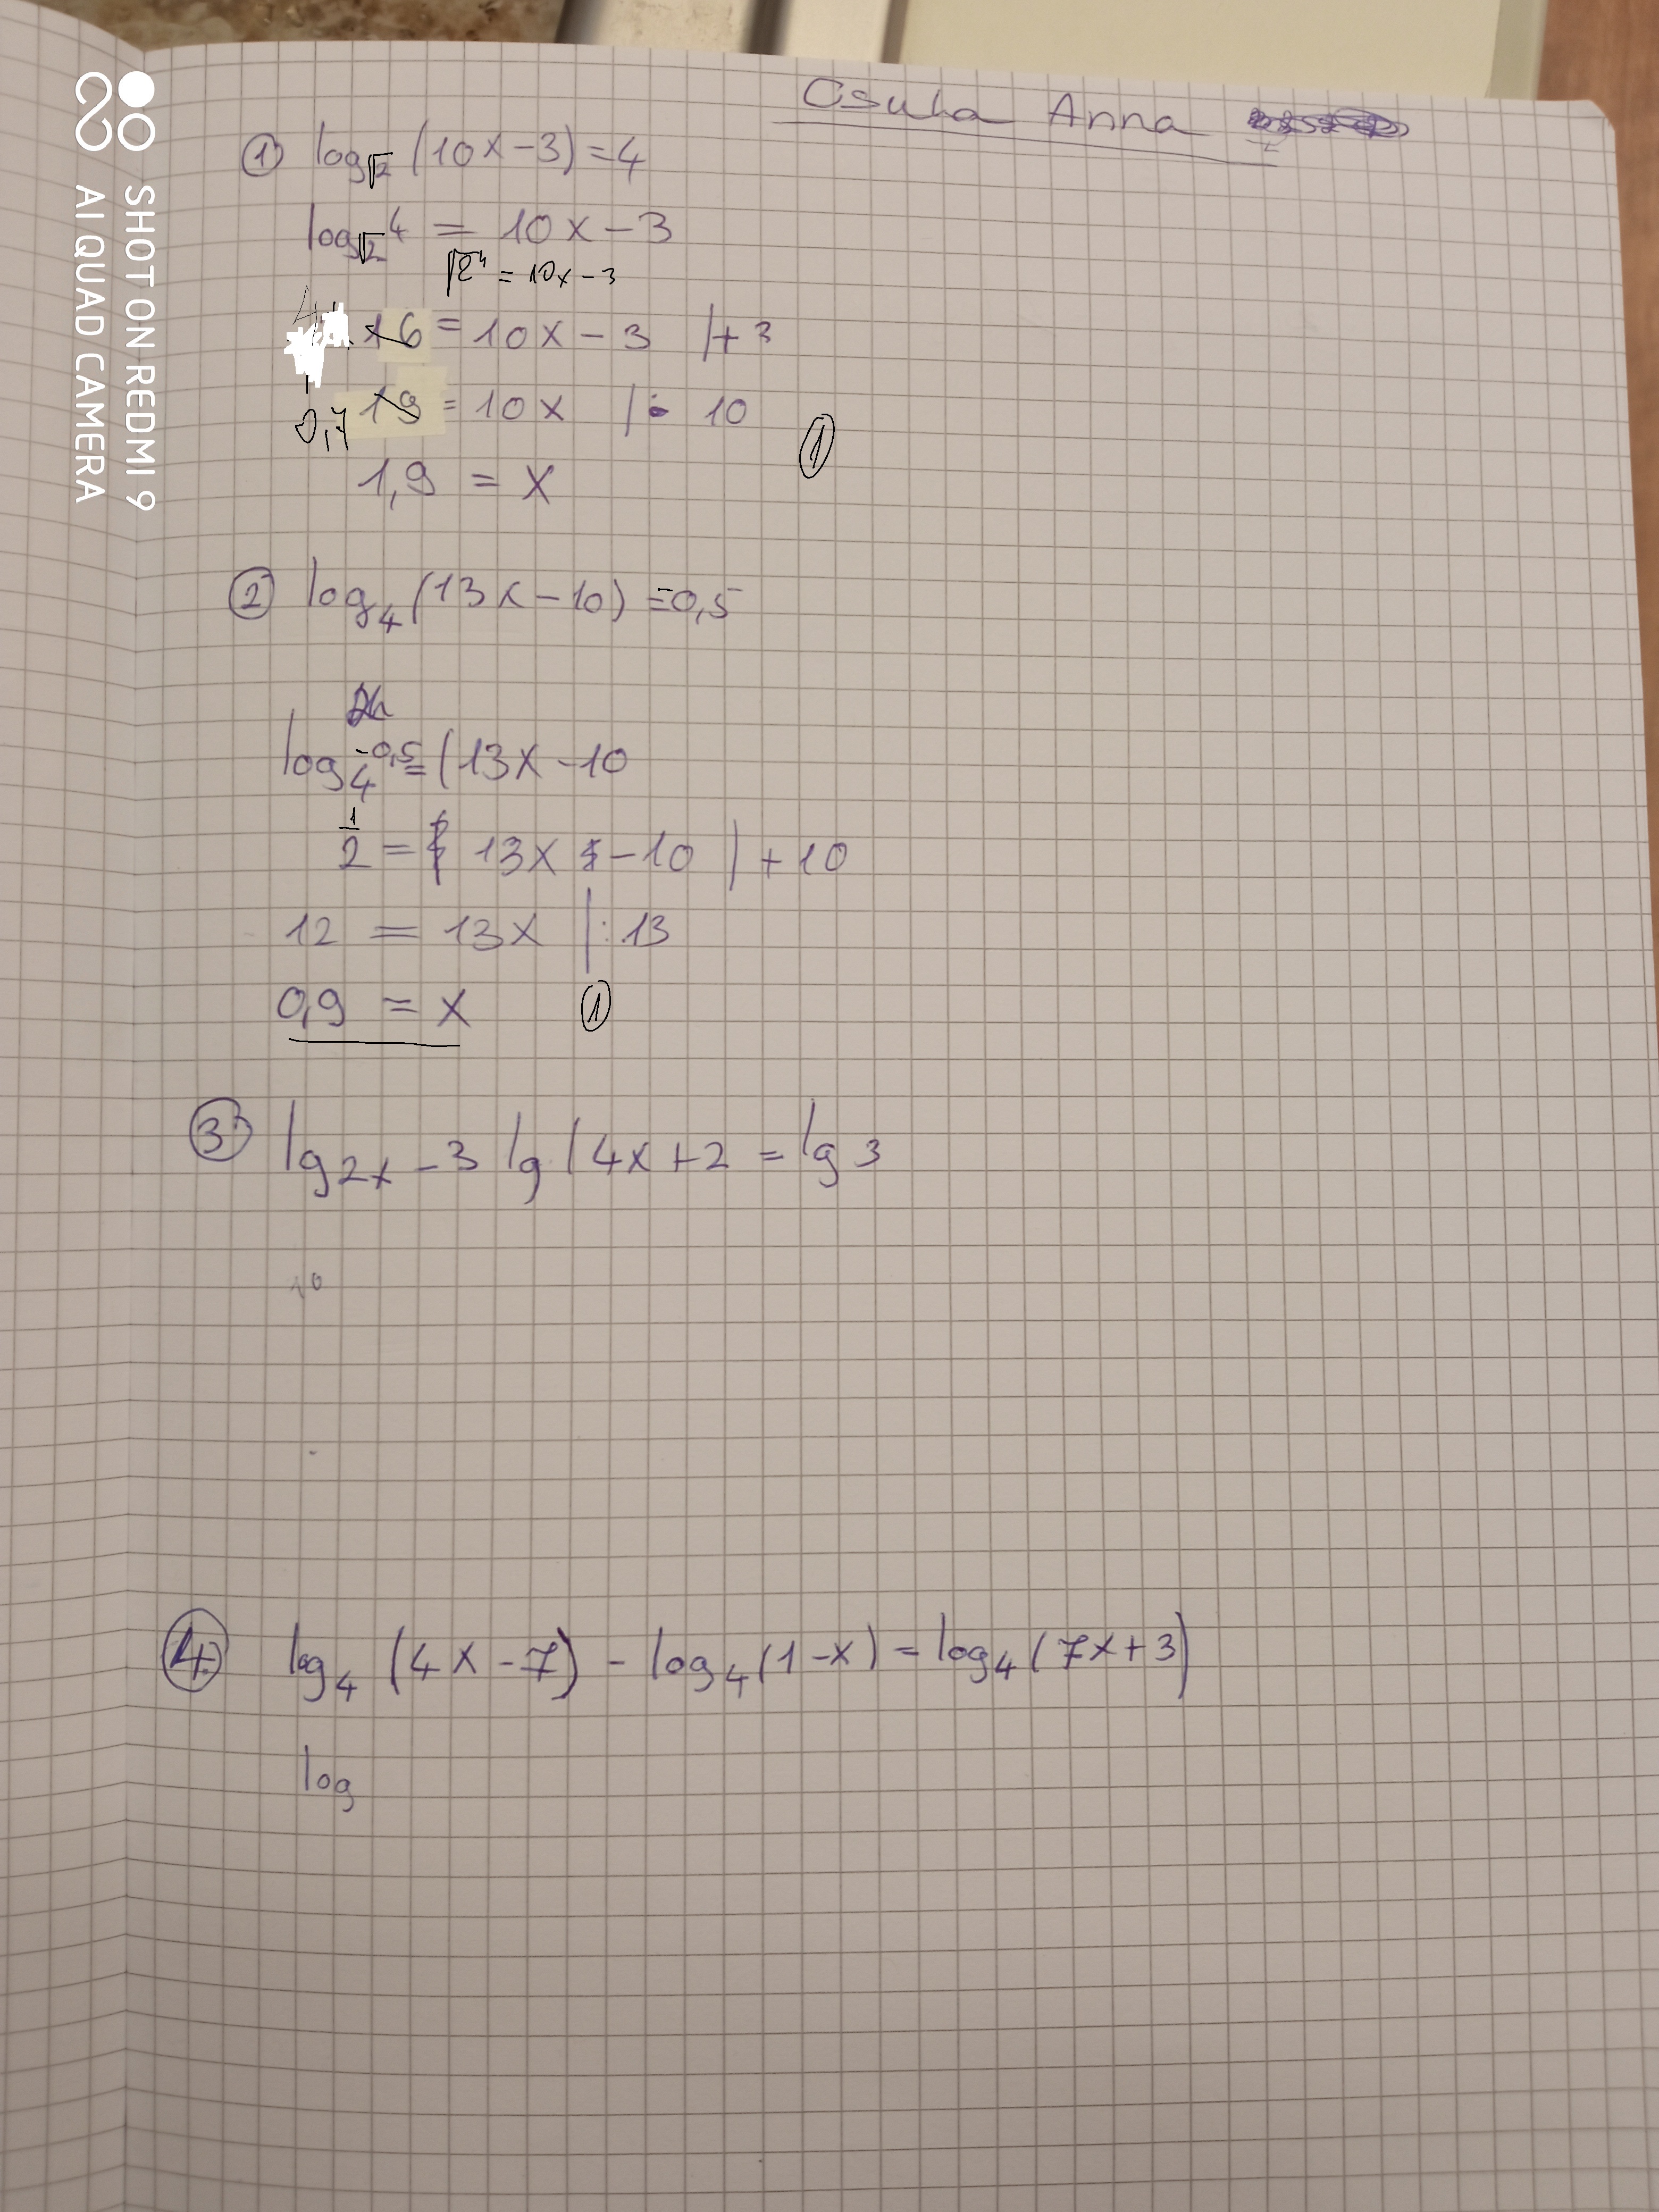 Csuha Anna
① log√2 (10x-3)=4
log√2 4 = 10x-3
√2⁴ = 10x-3
4 16 = 10x-3 /+3
0,7 19 = 10x /: 10
①
1,9 = x
② log₄(13x-10) =-0,5
log₄-0,5 = (13x-10
1/2 = 13x -10 /+10
12 = 13x /:13
0,9 = x ①
③ lg2x -3 lg (4x+2 = lg 3
10
④ log₄ (4x-7) - log₄(1-x) = log₄(7x+3)
log
SHOT ON REDMI 9
AI QUAD CAMERA